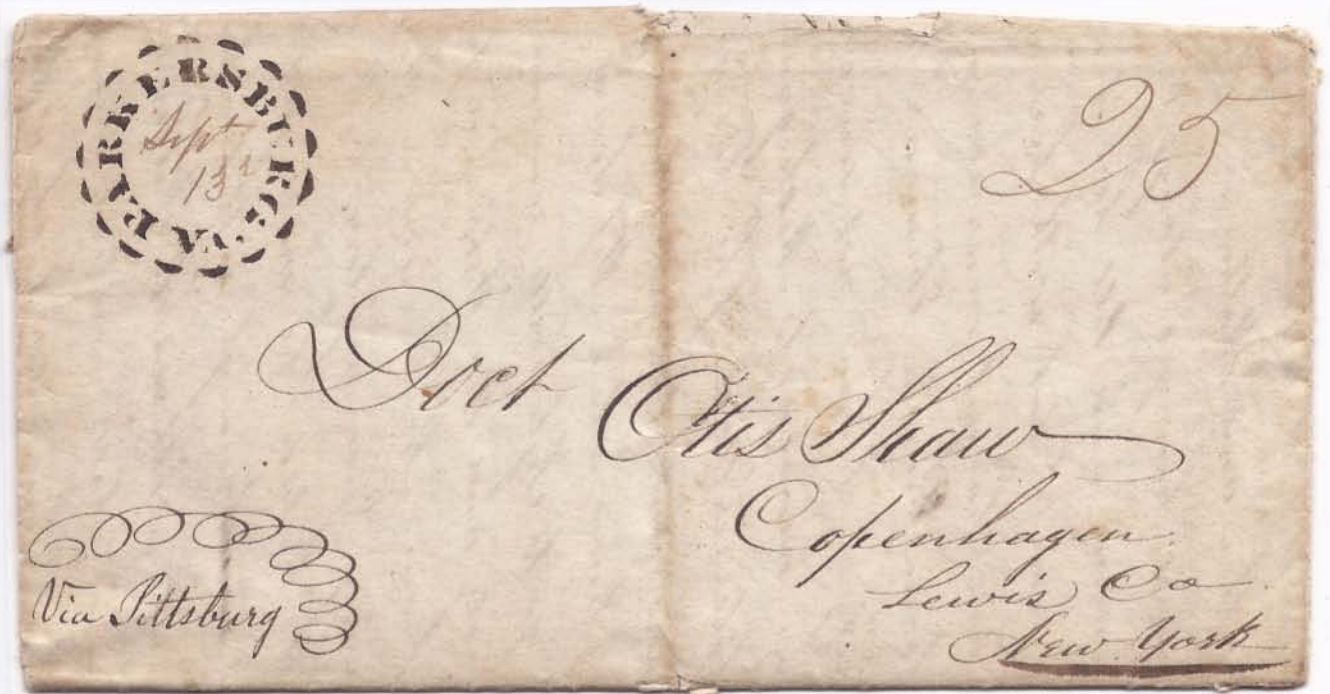 PARKERSBURG VA
Sept
13d
25
Doct Otis Shaw
Copenhagen
Lewis Co
New York
Via Pittsburg